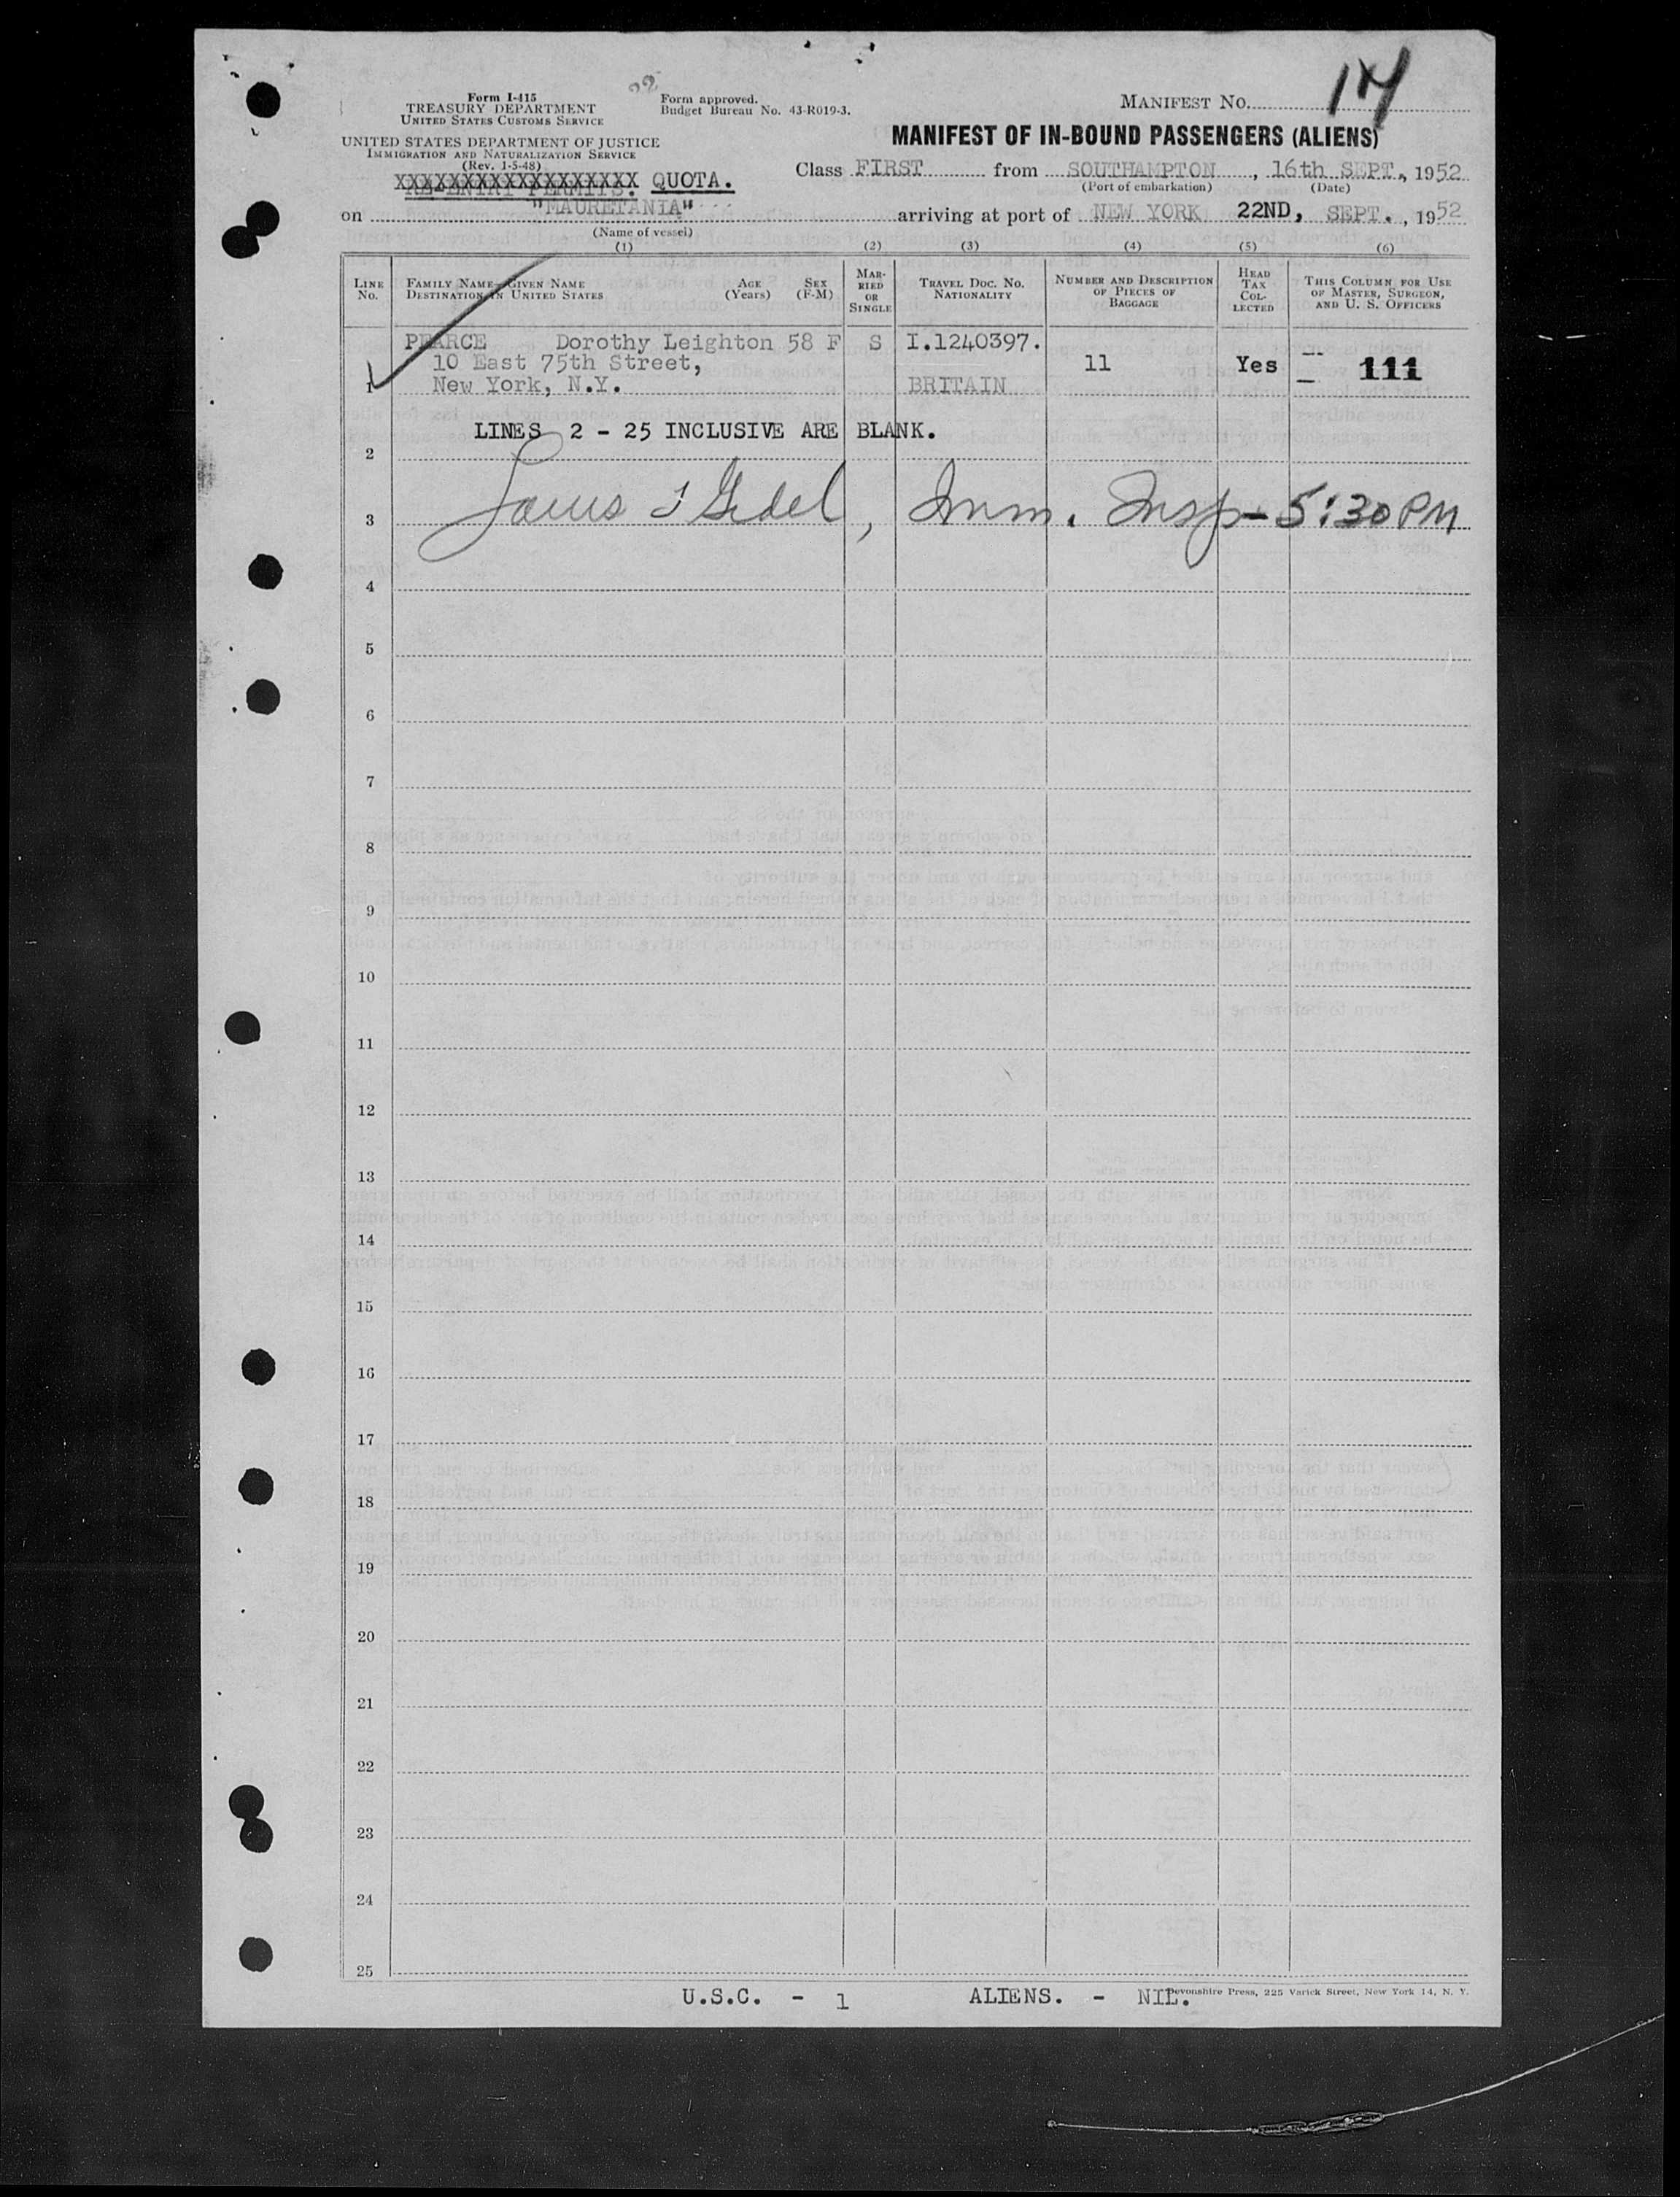 22
Form I-415
TREASURY DEPARTMENT
UNITED STATES CUSTOMS SERVICE
UNITED STATES DEPARTMENT OF JUSTICE
IMMIGRATION AND NATURALIZATION SERVICE
(Rev. 1-5-48)
Form approved.
Budget Bureau No. 43-R019-3.
MANIFEST NO. 17
MANIFEST OF IN-BOUND PASSENGERS (ALIENS)
XXXXXXXXXXXXXXXXXX QUOTA.
Class FIRST from SOUTHAMPTON, 16th SEPT., 1952
(Port of embarkation) (Date)
on "MAURETANIA" arriving at port of NEW YORK 22ND, SEPT., 1952
(Name of vessel)
(1) (2) (3) (4) (5) (6)
LINE No.
FAMILY NAME—GIVEN NAME
DESTINATION IN UNITED STATES
AGE (Years)
SEX (F-M)
MARRIED OR SINGLE
TRAVEL DOC. NO.
NATIONALITY
NUMBER AND DESCRIPTION OF PIECES OF BAGGAGE
HEAD TAX COLLECTED
THIS COLUMN FOR USE OF MASTER, SURGEON, AND U. S. OFFICERS
PEARCE Dorothy Leighton 58 F S I.1240397.
10 East 75th Street, 11 Yes — 111
1 New York, N.Y. BRITAIN
LINES 2 - 25 INCLUSIVE ARE BLANK.
2
3 Imm. Insp - 5:30 PM
4
5
6
7
8
9
10
11
12
13
14
15
16
17
18
19
20
21
22
23
24
25
U.S.C. - 1 ALIENS. - NIL.
Devonshire Press, 225 Varick Street, New York 14, N. Y.